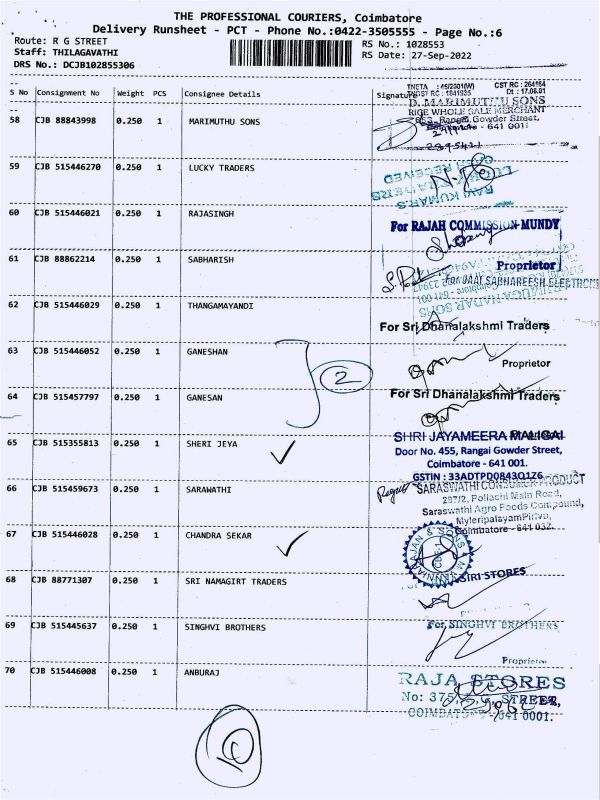 THE PROFESSIONAL COURIERS, Coimbatore
Delivery Runsheet - PCT - Phone No.:0422-3505555 - Page No.:6
Route: R G STREET
RS No.: 1028553
Staff: THILAGAVATHI
RS Date: 27-Sep-2022
DRS No.: DCJB102855306
S No Consignment No Weight PCS Consignee Details Signature
CST RC : 264164
Dt : 17.08.01
D. MARIMUTHU SONS
RICE WHOLE SALE MERCHANT
58 CJB 88843998 0.250 1 MARIMUTHU SONS
Gowder Street,
641 001
59 CJB 515446270 0.250 1 LUCKY TRADERS
RAVI KUMAR.S
60 CJB 515446021 0.250 1 RAJASINGH
For RAJAH COMMISSION MUNDY
Proprietor
61 CJB 88862214 0.250 1 SABHARISH
62 CJB 515446029 0.250 1 THANGAMAYANDI
For Sri Dhanalakshmi Traders
63 CJB 515446052 0.250 1 GANESHAN
2
Proprietor
64 CJB 515457797 0.250 1 GANESAN
For Sri Dhanalakshmi Traders
65 CJB 515355813 0.250 1 SHERI JEYA
SHRI JAYAMEERA MALIGAI
Door No. 455, Rangai Gowder Street,
Coimbatore - 641 001.
GSTIN : 33ADTPD0843Q1Z6
66 CJB 515459673 0.250 1 SARAWATHI
SARASWATHI CONSUMER PRODUCT
297/2, Pollachi Main Road,
Saraswathi Agro Foods Compound,
Coimbatore - 641 032.
67 CJB 515446028 0.250 1 CHANDRA SEKAR
68 CJB 88771307 0.250 1 SRI NAMAGIRT TRADERS
SIRI STORES
69 CJB 515445637 0.250 1 SINGHVI BROTHERS
For SINGHVI BROTHERS
Proprietor
70 CJB 515446008 0.250 1 ANBURAJ
RAJA STORES
No: 375, STREET,
COIMBATORE - 641 0001.
10